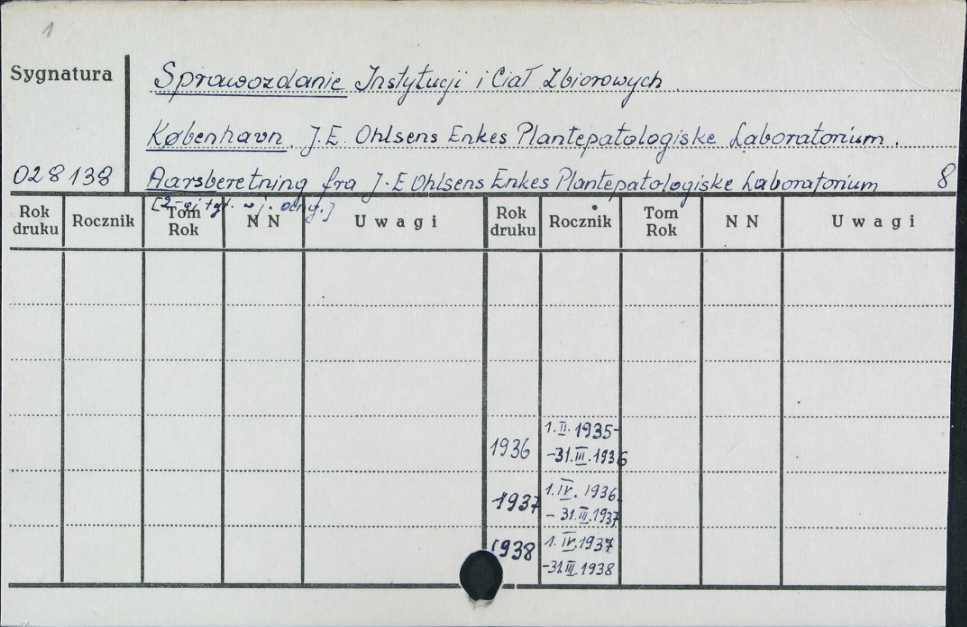 1
Sygnatura
Sprawozdanie Instytucji i Ciał Zbiorowych.
København. J.E. Ohlsens Enkes Plantepatologiske Laboratorium.
028138 Aarsberetning fra J.E Ohlsens Enkes Plantepatologiske Laboratorium 8
Rok druku Rocznik Tom Rok N N Uwagi Rok druku Rocznik Tom Rok N N Uwagi
1936 1.II.1935-
-31.III.1936
1937 1.IV.1936.
- 31.III.1937
1938 1.IV.1937
-31.III.1938